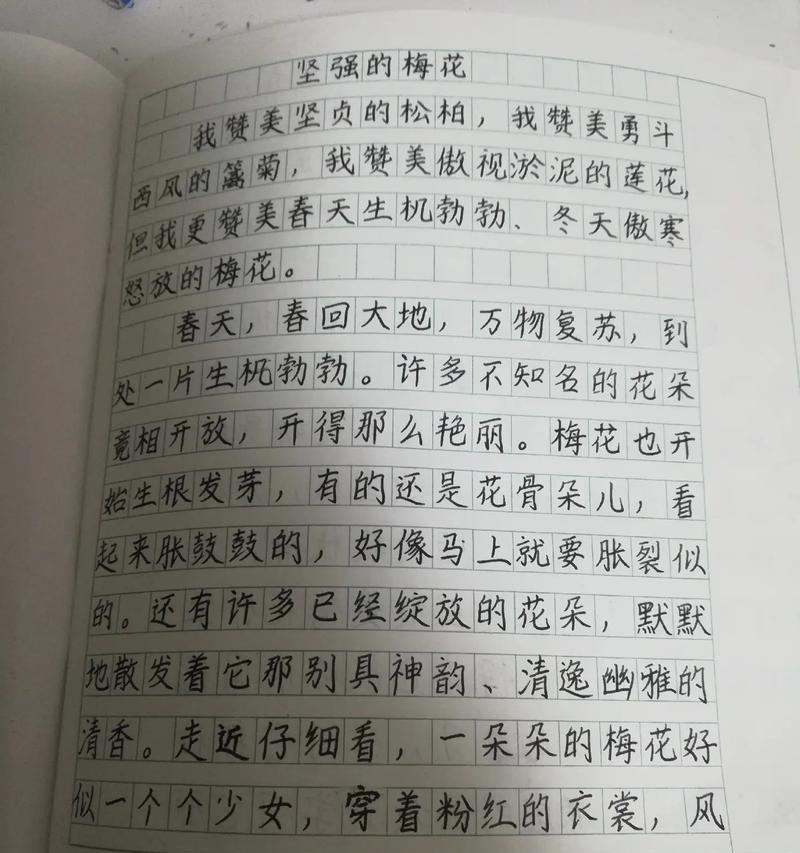 坚强的梅花
我赞美坚贞的松柏，我赞美勇斗
西风的篱菊，我赞美傲视淤泥的莲花,
但我更赞美春天生机勃勃、冬天傲寒
怒放的梅花。
春天，春回大地，万物复苏，到
处一片生机勃勃。许多不知名的花朵
竟相开放，开得那么艳丽。梅花也开
始生根发芽，有的还是花骨朵儿，看
起来胀鼓鼓的，好像马上就要胀裂似
的。还有许多已经绽放的花朵，默默
地散发着它那别具神韵、清逸幽雅的
清香。走近仔细看，一朵朵的梅花好
似一个个少女，穿着粉红的衣裳，风